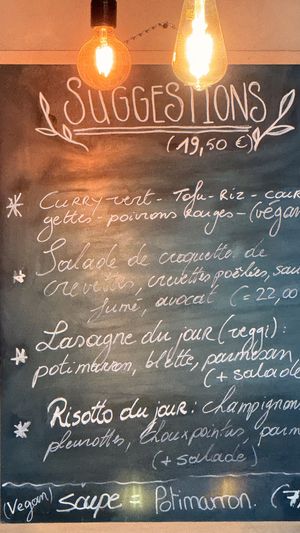 SUGGESTIONS
(19,50 €)
* CURRY-vert - Tofu - Riz - cour
gettes - poivrons rouges - (vegan
* Salade de croquette de
crevettes, crevettes poêlées, sau
fumé, avocat (= 22,00
* Lasagne du jour (veggi) :
potimarron, blette, parmesan
(+ salade
* Risotto du jour : champignon
pleurottes, choux pointus, parm
(+ salade)
(Vegan) soupe = Potimarron. (7,